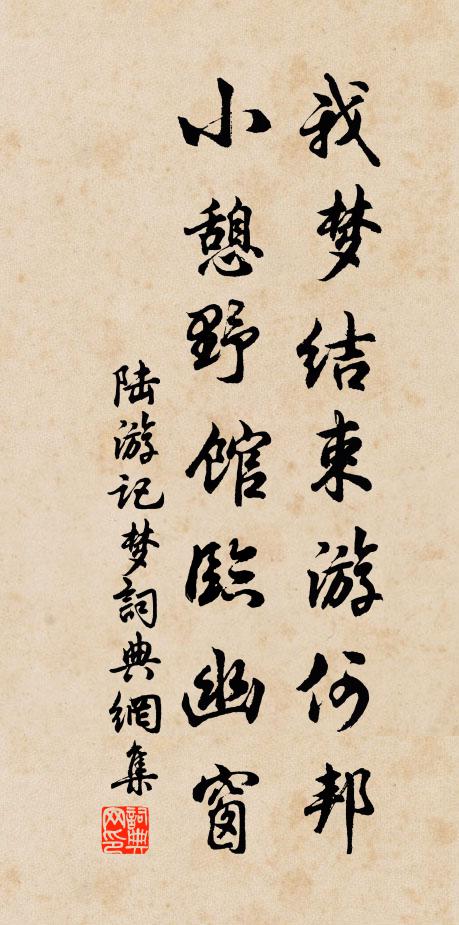 我梦结束游何邦
小憩野馆临幽窗
陆游记梦詞典網集
詞典网印